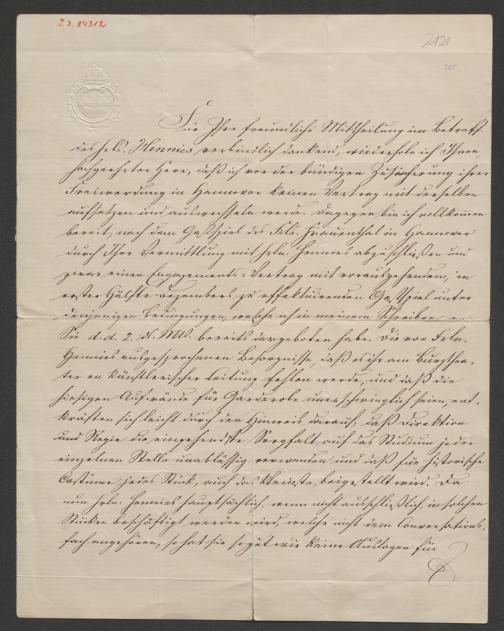 I.N. 84312
2121
Für Ihre freundliche Mittheilung im Betreff
des Frls. Hennies verbindlich dankend, wiederhole ich Ihnen,
hochgeehrter Herr, daß ich vor der bündigen Zusicherung ihrer
Freiwerdung in Hannover keinen Vertrag mit derselben
aufsetzen und auswechseln werde. Dagegen bin ich vollkommen
bereit, nach dem Gastspiel des Frls. Frauenthal in Hannover
durch Ihre Vermittlung mit Frln. Hennies abzuschließen und
zwar einen Engagements-Vertrag mit vorausgehendem, in
erster Hälfte Dezembers zu effektuirenden Gastspiel unter
denjenigen Bedingungen, welche ich in meinem Schreiben an
Sie d.d. 2. d. Mts. bereits dargeboten habe. Die von Frln.
Hennies ausgesprochenen Besorgnisse, daß es ihr am Burgthea-
ter an künstlerischer Leitung fehlen werde, und daß die
hiesigen Aufwände für Garderobe unerschwinglich seien, ent-
kräften sich leicht durch den Hinweis darauf, daß Direktion
und Regie die eingehendste Sorgfalt auf das Studium jeder
einzelnen Stelle unablässig verwenden, und daß für historische
Costüme jedes Stück, auch das kleinste, beigestellt wird. Da
nun Frln. Hennies hauptsächlich, wenn nicht ausschließlich in solchen
Stücken beschäftigt werden wird, welche nicht dem Conversations-
fach angehören, so hat sie so gut wie keine Auslagen für